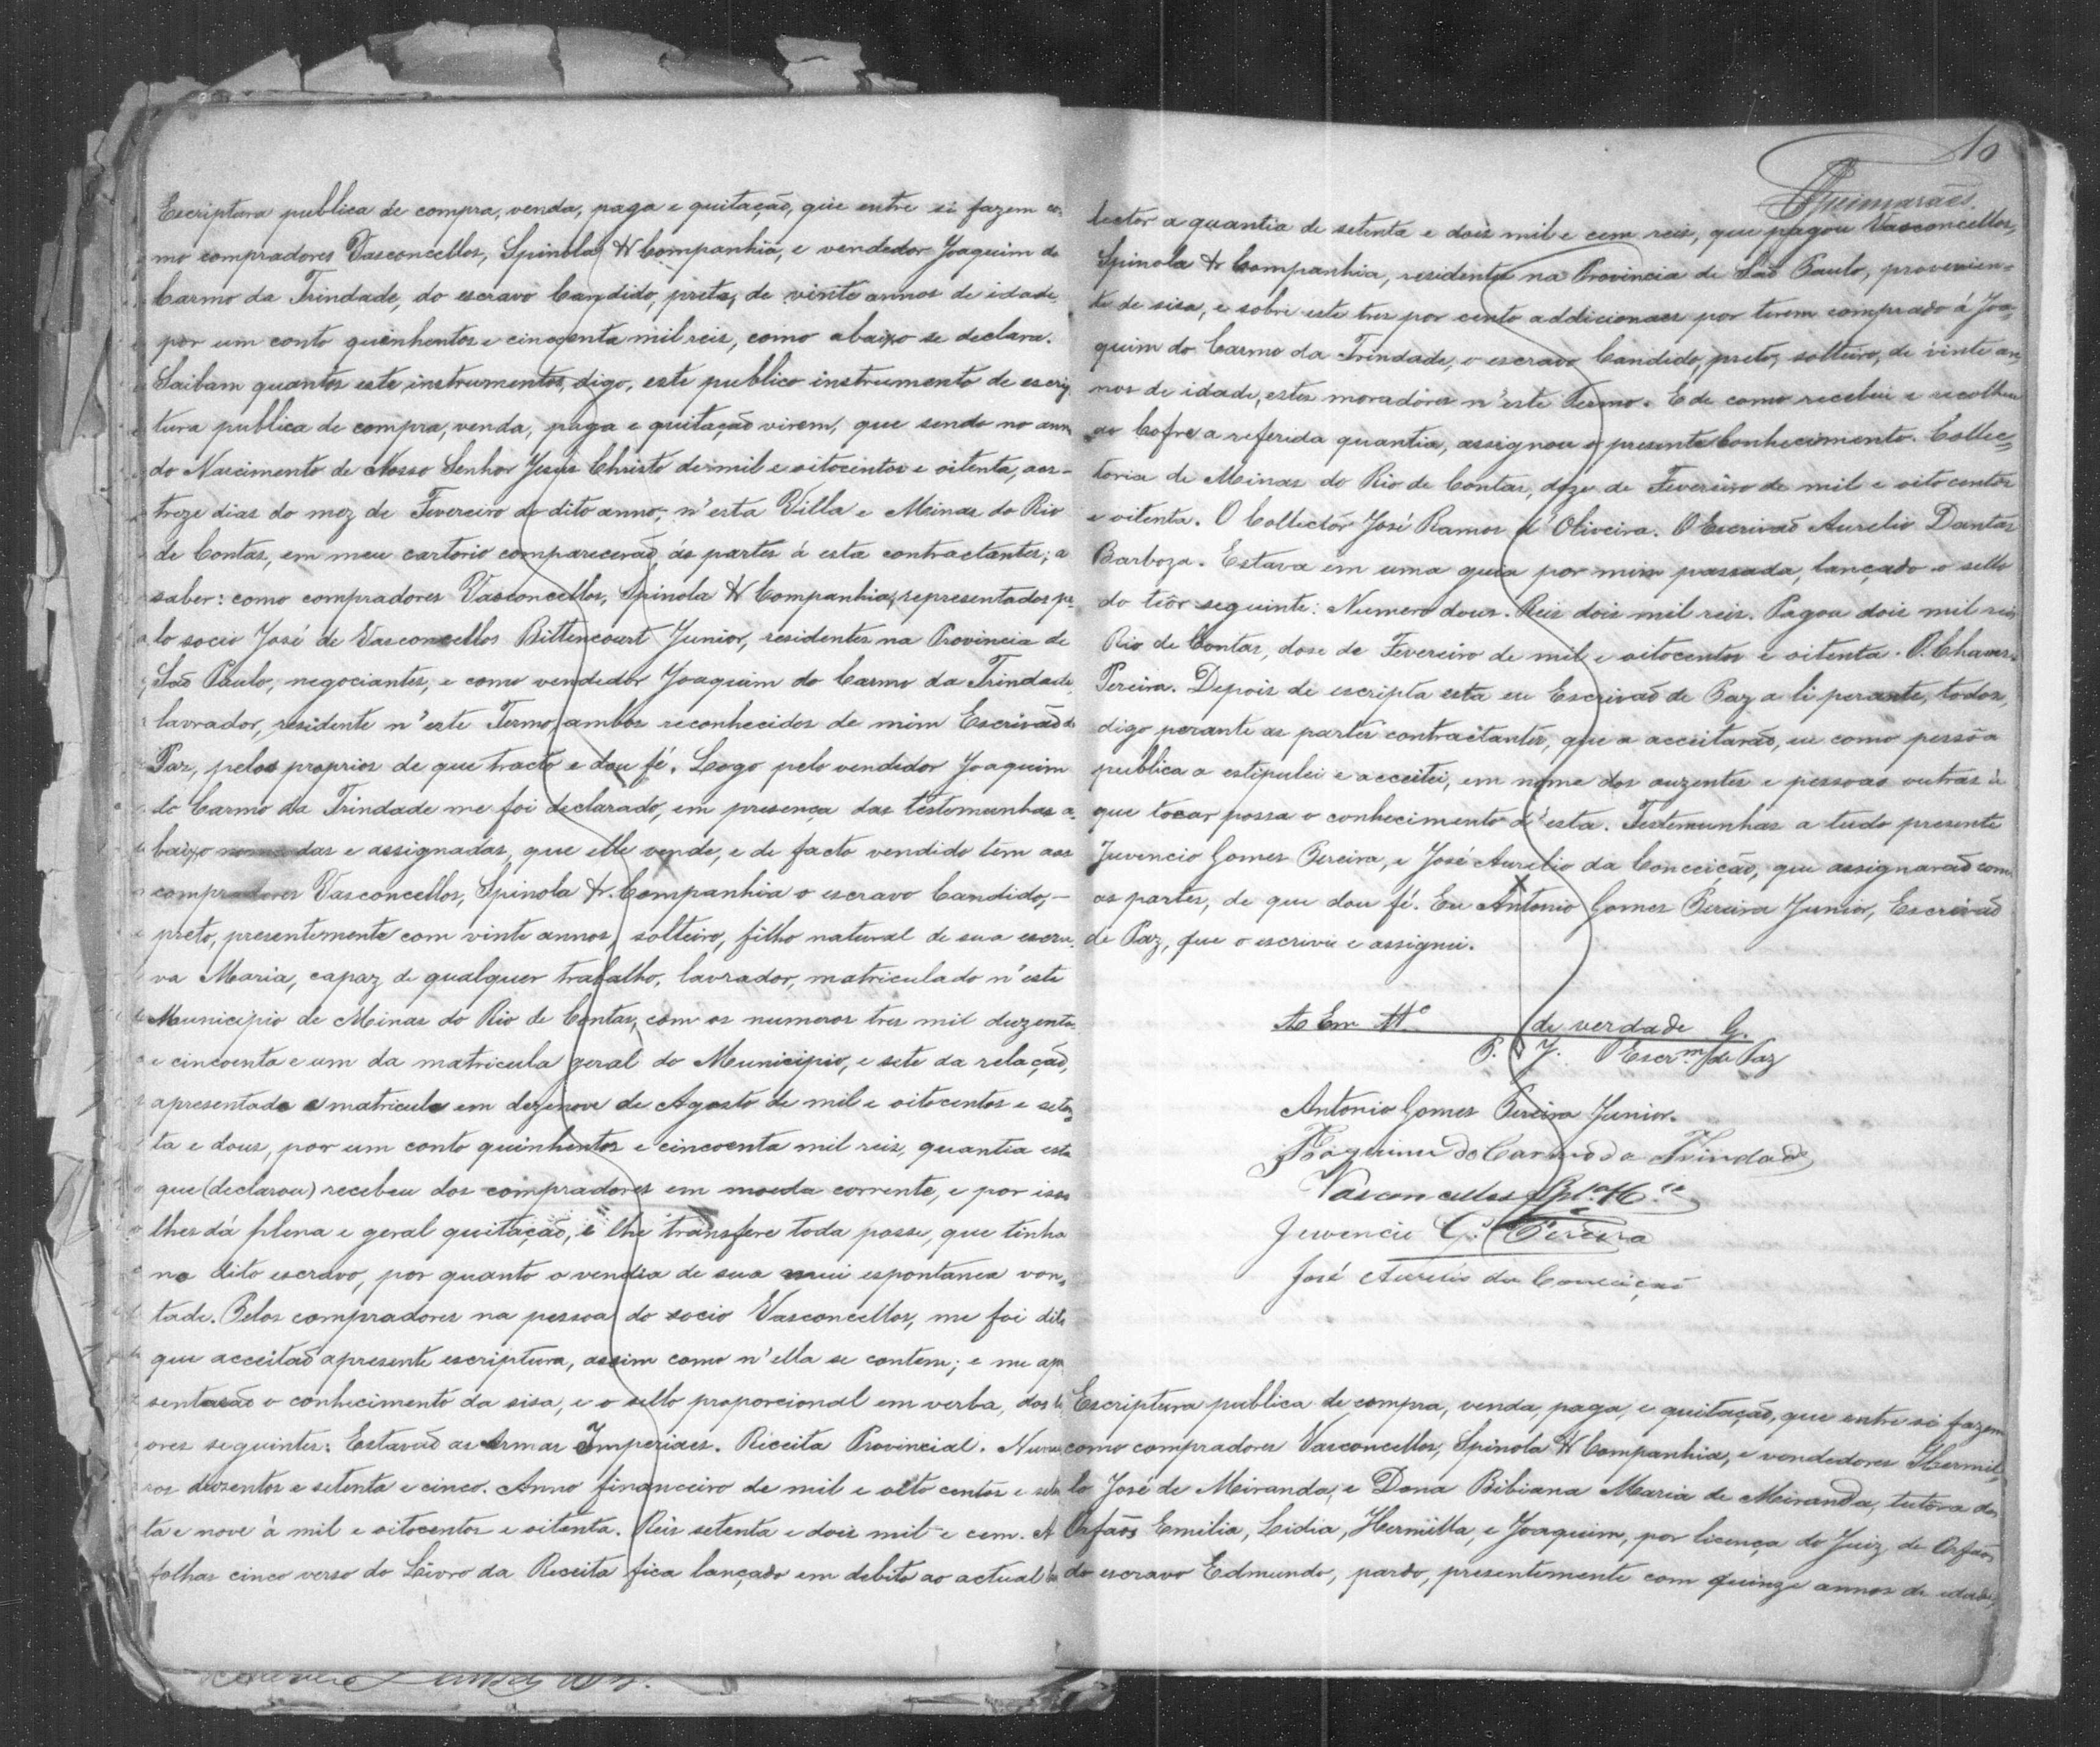 Escriptura publica de compra, venda, paga e quitação, que entre si fazem co-
mo compradores Vasconcellos, Spinola & Companhia, e vendedor Joaquim do
Carmo da Trindade, do escravo Candido, preto, de vinte annos de idade,
por um conto quinhentos e cincoenta mil reis, como abaixo se declara.
Saibam quantos este, instrumentos, digo, este publico instrumento de escrip-
tura publica de compra, venda, paga e quitação virem, que sendo no anno
do Nascimento de Nosso Senhor Jesus Christo de mil e oitocentos e oitenta, aos-
treze dias do mez de Fevereiro do dito anno, n'esta Villa e Minas do Rio
de Contas, em meu cartorio comparecerão, ás partes á esta contractantes; a
saber: como compradores Vasconcellos, Spinola & Companhia, representados pe-
lo socio José de Vasconcellos Bittencourt Junior, residentes na Provincia de
São Paulo, negociantes, e como vendedor Joaquim do Carmo da Trindade,
lavrador, residente n'este Termo, ambos reconhecidos de mim Escrivão de
Paz, pelos proprios de que tracto e dou fé. Logo pelo vendedor Joaquim
do Carmo da Trindade me foi declarado, em presença das testemunhas a-
baixo nomeadas e assignadas, que elle vende, e de facto vendido tem aos
compradores Vasconcellos, Spinola & Companhia o escravo Candido,-
preto, presentemente com vinte annos, solteiro, filho natural de sua escra-
va Maria, capaz de qualquer trabalho, lavrador, matriculado n'este
Municipio de Minas do Rio de Contas, com os numeros tres mil duzentos
e cincoenta e um da matricula geral do Municipio, e sete da relação,
apresentada a matricula em dezenove de Agosto de mil e oitocentos e seten-
ta e dous, por um conto quinhentos e cincoenta mil reis, quantia esta
que (declarou) recebeu dos compradores em moeda corrente, e por isso
lhes dá plena e geral quitação, e lhe transfere toda posse, que tinha
no dito escravo, por quanto o vendia de sua mui espontanea von-
tade. Pelos compradores na pessoa do socio Vasconcellos, me foi dito
que acceitão a presente escriptura, assim como n'ella se contem; e me apre
sentarão o conhecimento da sisa, e o sello proporcional em verba, dos te
ores seguintes: Estavão as Armas Imperiaes. Receita Provincial. Nume
ros duzentos e setenta e cinco. Anno financeiro de mil e oito centos e seten
ta e nove á mil e oitocentos e oitenta. Reis setenta e dois mil e cem. A
folhas cinco verso do Livro da Receita fica lançado em debito ao actual Col
10
Guimarães.
lector a quantia de setenta e dois mil e cem reis, que pagou Vasconcellos,
Spinola & Companhia, residentes na Provincia de São Paulo, provenien-
te de sisa, e sobre este tres por cento addicionaes por terem comprado á Joa-
quim do Carmo da Trindade, o escravo Candido, preto, solteiro, de vinte an-
nos de idade, estes moradores n'este Termo. E de como recebeu e recolheu
ao Cofre a referida quantia, assignou o presente Conhecimento. Collec-
toria de Minas do Rio de Contas, doze de Fevereiro de mil e oitocentos
e oitenta. O Collector José Ramos d'Oliveira. O Escrivão Aurelio Dantas
Barboza. Estava em uma guia por mim passada, lançado o sello
do teôr seguinte: Numero dous. Reis dois mil reis. Pagou dois mil reis
Rio de Contas, dose de Fevereiro de mil e oitocentos e oitenta. O. Chaves.
Pereira. Depois de escripta esta eu Escrivão de Paz a li perante, todos,
digo perante as partes contractantes, que a acceitarão, eu como persôa
publica a estipulei e acceitei, em nome dos auzentes e pessoas outras á
que tocar possa o conhecimento d'esta. Testemunhas a tudo presente
Juvencio Gomes Pereira, e José Aurelio da Conceição, que assignarão com
as partes, de que dou fé. Eu Antonio Gomes Pereira Junior, Escrivão
de Paz, que o escrivi e assignei.
Em de verdade
P. J. O Escr.m de Paz
Antonio Gomes Pereira Junior.
Joaquim do Carmo da Trindade
Vasconcellos Spl.a & C.ia
Juvencio G. Pereira
José Aurelio da Conceição
Escriptura publica de compra, venda, paga, e quitação, que entre si fazem
como compradores Vasconcellos, Spinola & Companhia, e vendedores Hermil-
lo José de Miranda, e Dona Bibiana Maria de Miranda, tutora dos
Orfãos Emilia, Lidia, Hermilla, e Joaquim, por licença do Juiz de Orfãos
do escravo Edmundo, pardo, presentemente com quinze annos de idade,